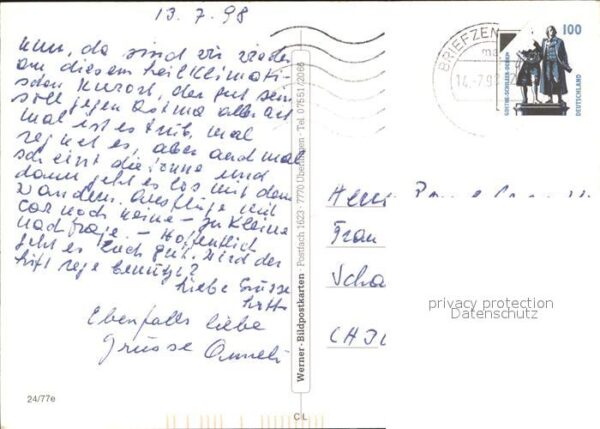 13.7.98
Nun, da sind wir wieder
an diesem heilklimati-
schen Kurort, der gut sein
soll gegen Astma aller Art
mal ist es trüb, mal
regnet es, aber auch mal
scheint die Sonne und
dann geht es los mit dem
Wandern. Ausflüge mit
Car noch keine - zu kleine
Nachfrage. - Hoffentlich
geht es Euch gut. Wird der
Lift rege benützt?
Liebe Grüsse
Ebenfalls liebe
Grüsse Anneli
24/77e
Werner-Bildpostkarten · Postfach 1623 · 7770 Überlingen · Tel. 07551/2086
C L
BRIEFZEN
14.-7.98
100
GOETHE-SCHILLER-DENKMAL
DEUTSCHLAND
Herrn
Frau
Scha
CH
privacy protection
Datenschutz